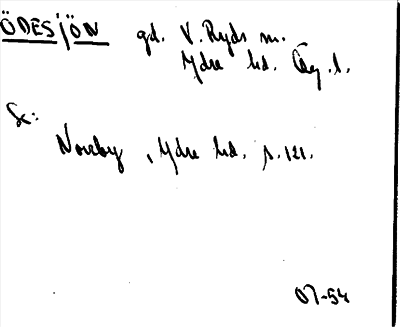 ÖDESJÖN gd. V. Ryds sn.
Ydre hd. Ög. l.
Se:
Noreby, Ydre hd. s. 121.
07-54